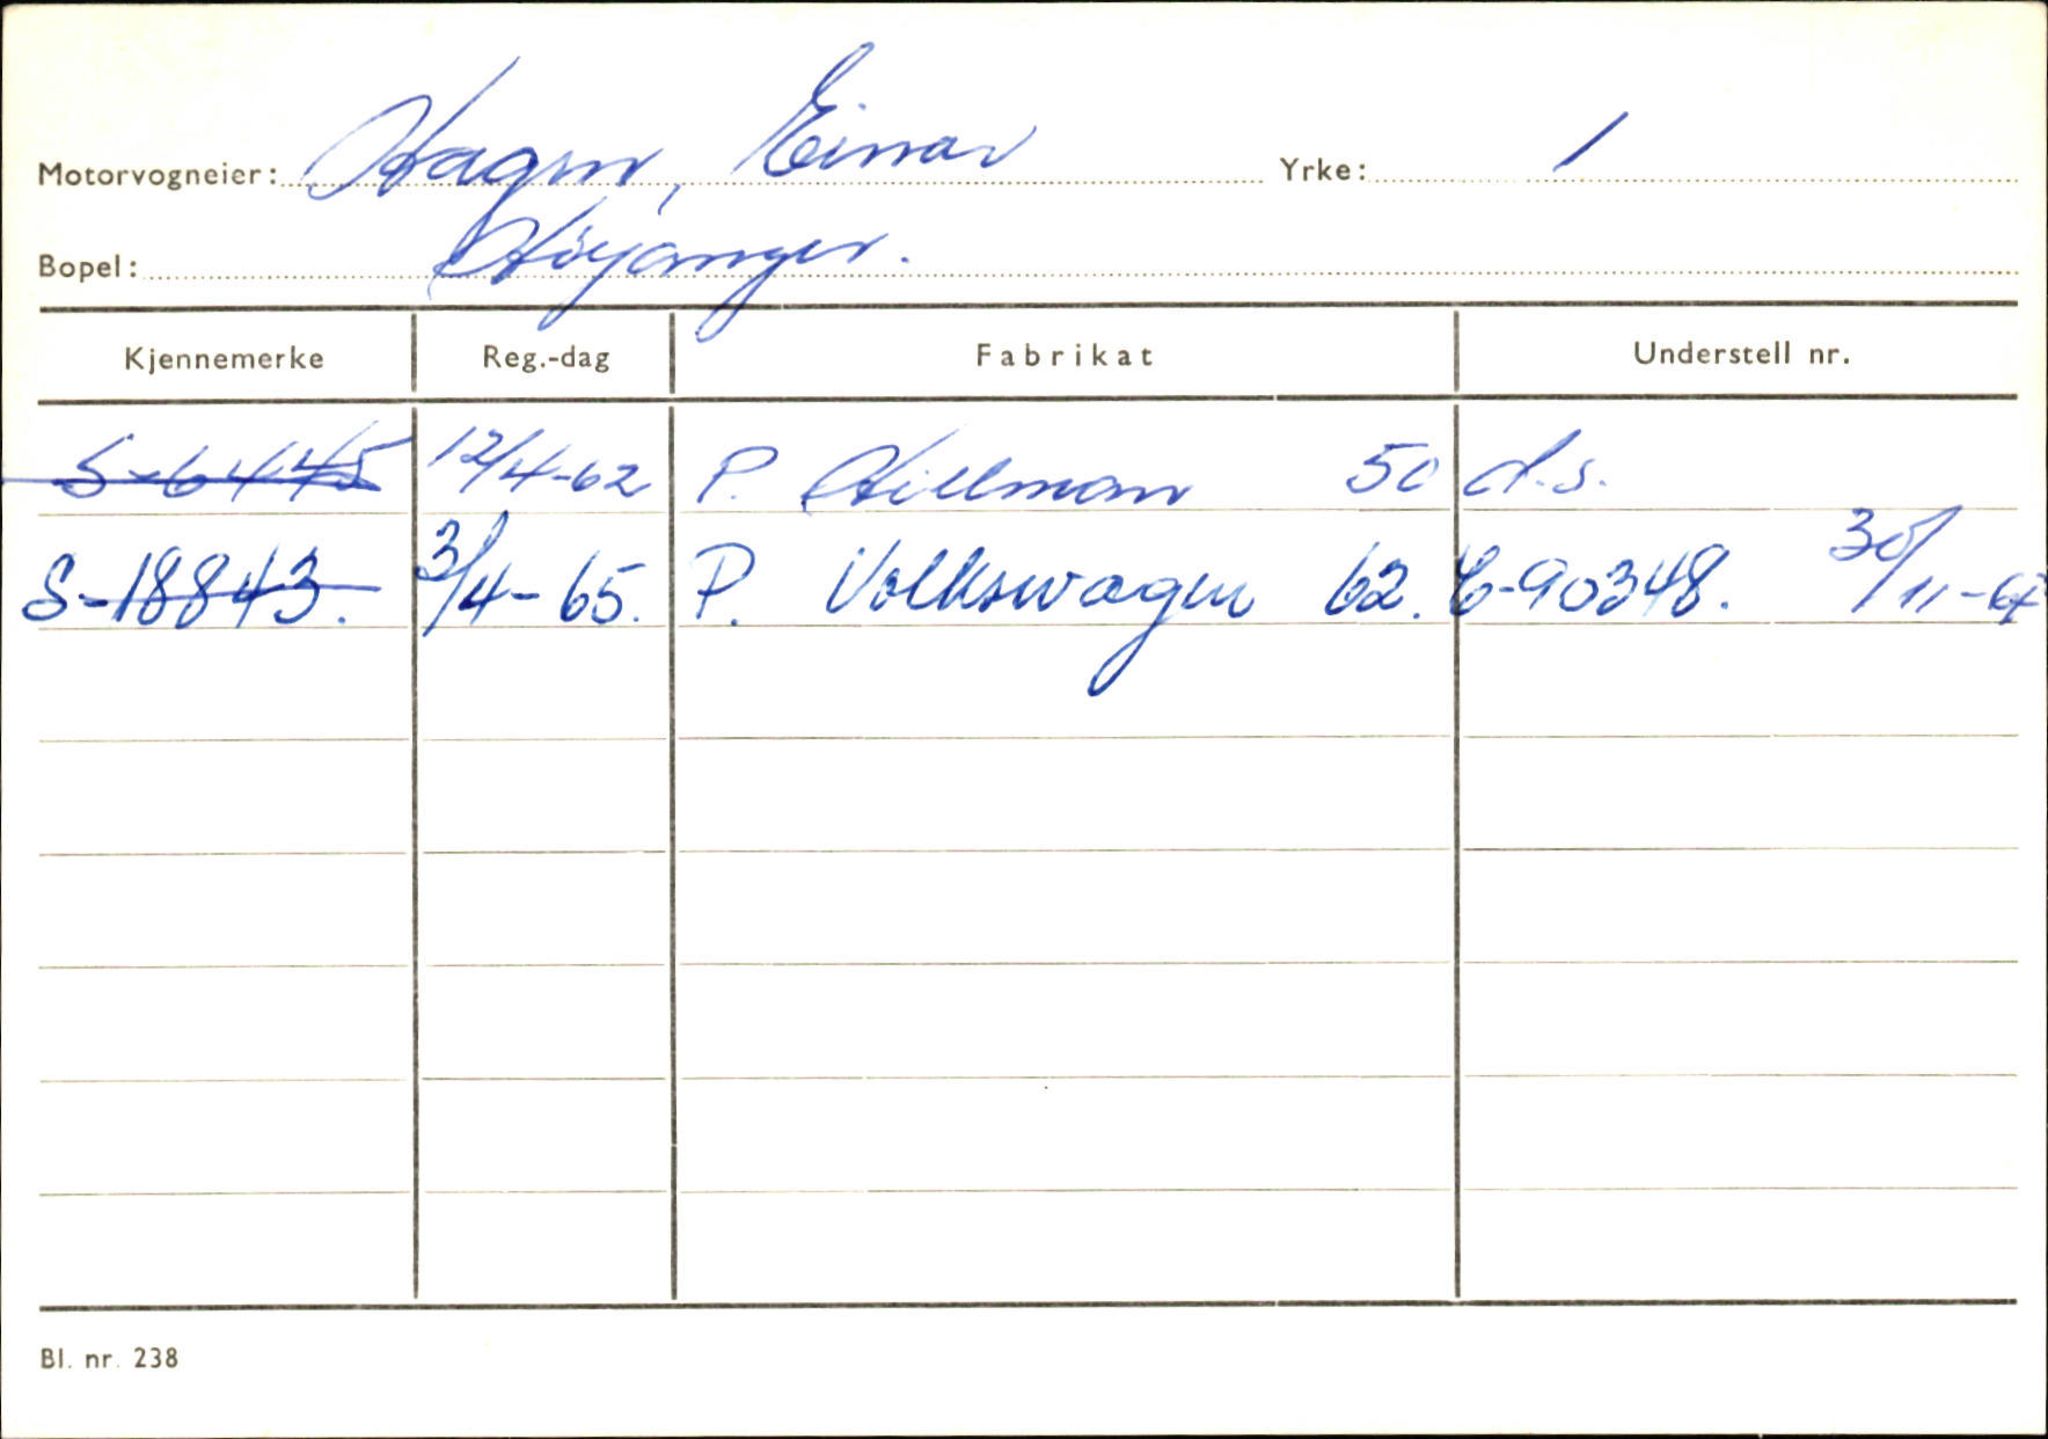 Motorvogneier: Hagen, Einar Yrke: 1
Bopel: Høyanger.
Kjennemerke Reg.-dag Fabrikat Understell nr.
S-6445 12/4-62 P. Hillman 50 d.s.
S-18843. 3/4-65. P. Volkswagen 62. 6-90348. 30/11-67
Bl. nr. 238